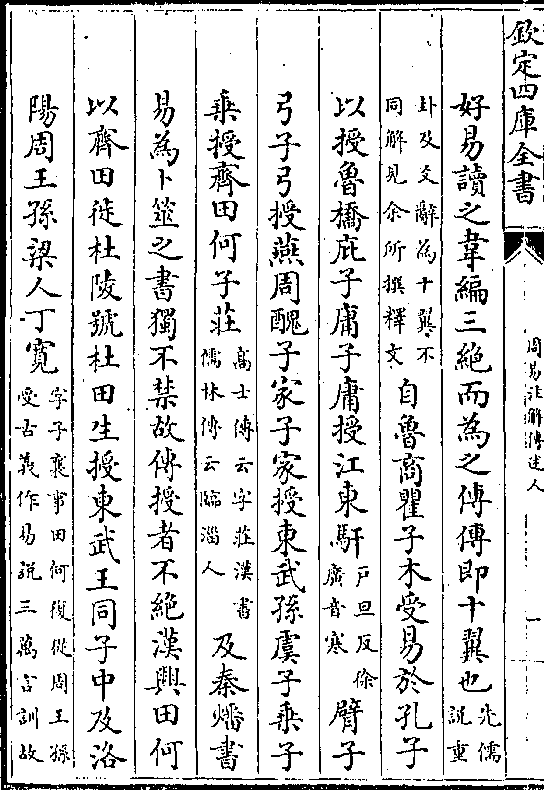 欽定四庫全書
周易註解傳述人
一
好易讀之韋編三絶而為之傳傳即十翼也先儒說重
卦及爻辭為十翼不同解見余所撰釋文自魯商瞿子木受易於孔子
以授魯橋庇子庸子庸授江東馯戸旦反徐廣音寒臂子
弓子弓授燕周醜子家子家授東武孫虞子乗子
乗授齊田何子莊高士傳云字莊漢書儒林傳云臨淄人及秦燔書
易為卜筮之書獨不禁故傳授者不絶漢興田何
以齊田徙杜陵號杜田生授東武王同子中及洛
陽周王孫梁人丁寛字子襄事田何復從周王孫受古義作易說三萬言訓故